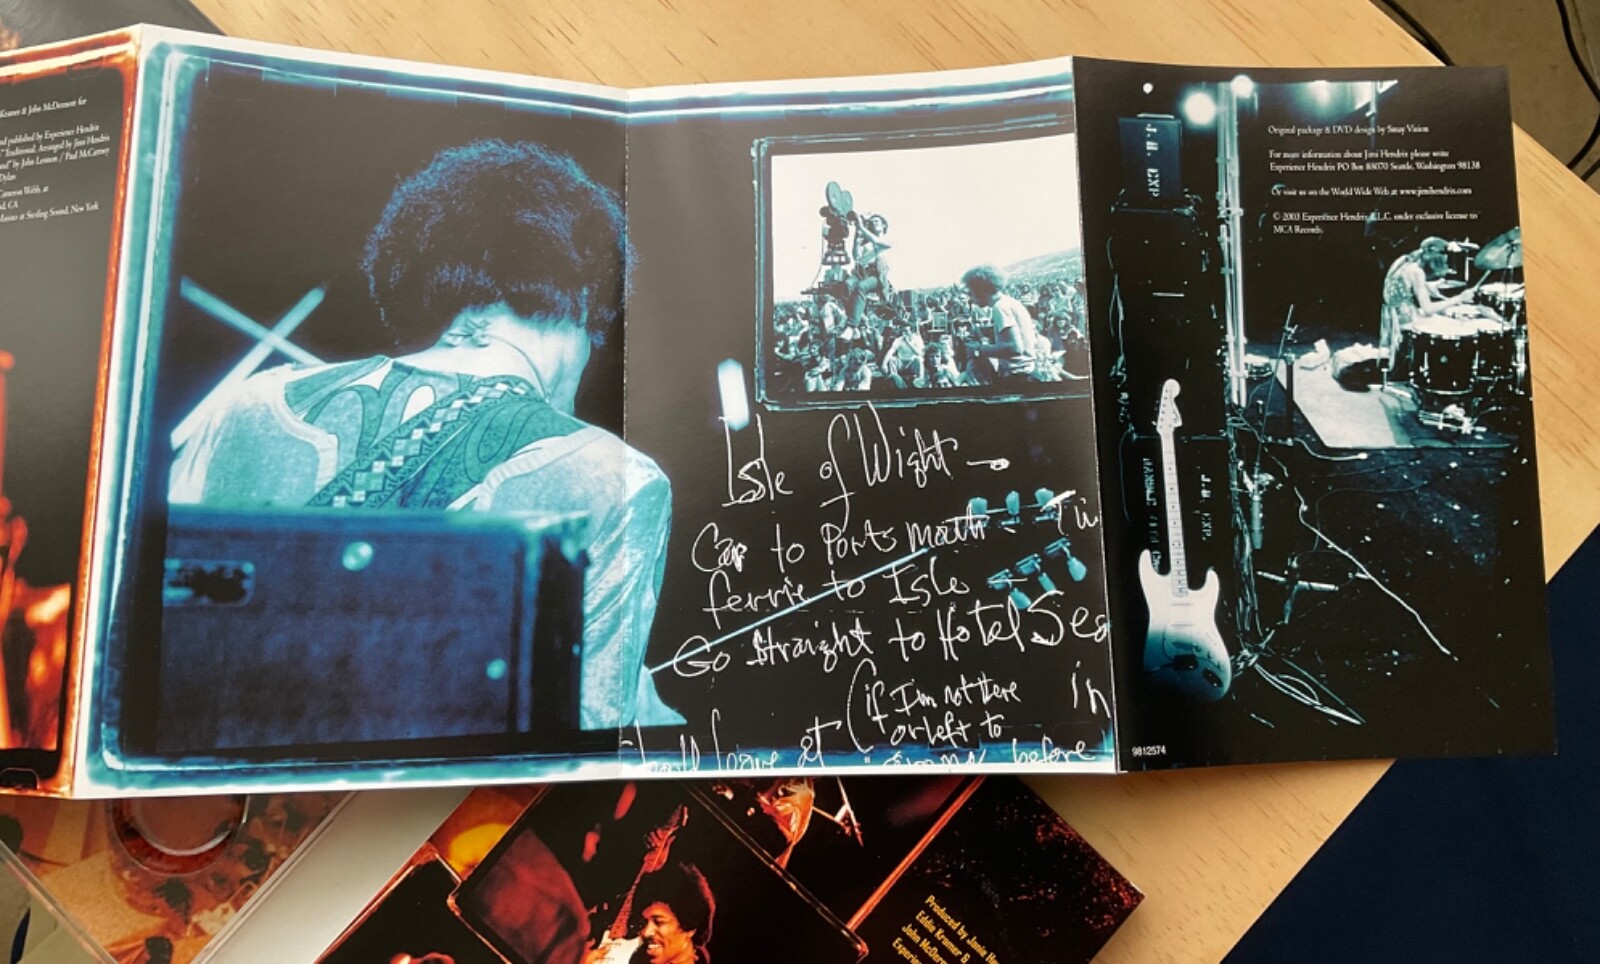 Kramer & John McDermott for
nd published by Experience Hendrix
" Traditional, Arranged by Jimi Hendrix
and" by John Lennon / Paul McCartney
Dylan
Cameron Webb, at
d, CA
Masino at Sterling Sound, New York
Isle of Wight —
Car to Portsmouth -
ferrie to Isle —
Go straight to Hotel Sea
(if I'm not there in
or left to
leave at before
J.H. EXP
J.H. EXP
Original package & DVD design by Smay Vision
For more information about Jimi Hendrix please write
Experience Hendrix PO Box 88070 Seattle, Washington 98138
Or visit us on the World Wide Web at www.jimihendrix.com
© 2003 Experience Hendrix L.L.C. under exclusive license to
MCA Records.
9812574
Produced by Janie He
Eddie Kramer &
John McDerm
Experie